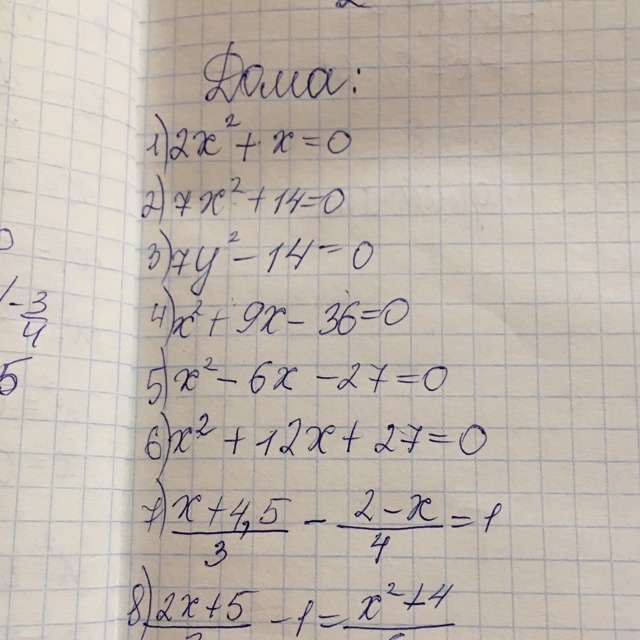 Дома:
1) 2x² + x = 0
2) 7x² + 14 = 0
3) 7y² - 14 = 0
4) x² + 9x - 36 = 0
5) x² - 6x - 27 = 0
6) x² + 12x + 27 = 0
7) (x + 4,5)/3 - (2 - x)/4 = 1
8) 2x + 5 - 1 = x² + 4
-3/4
5